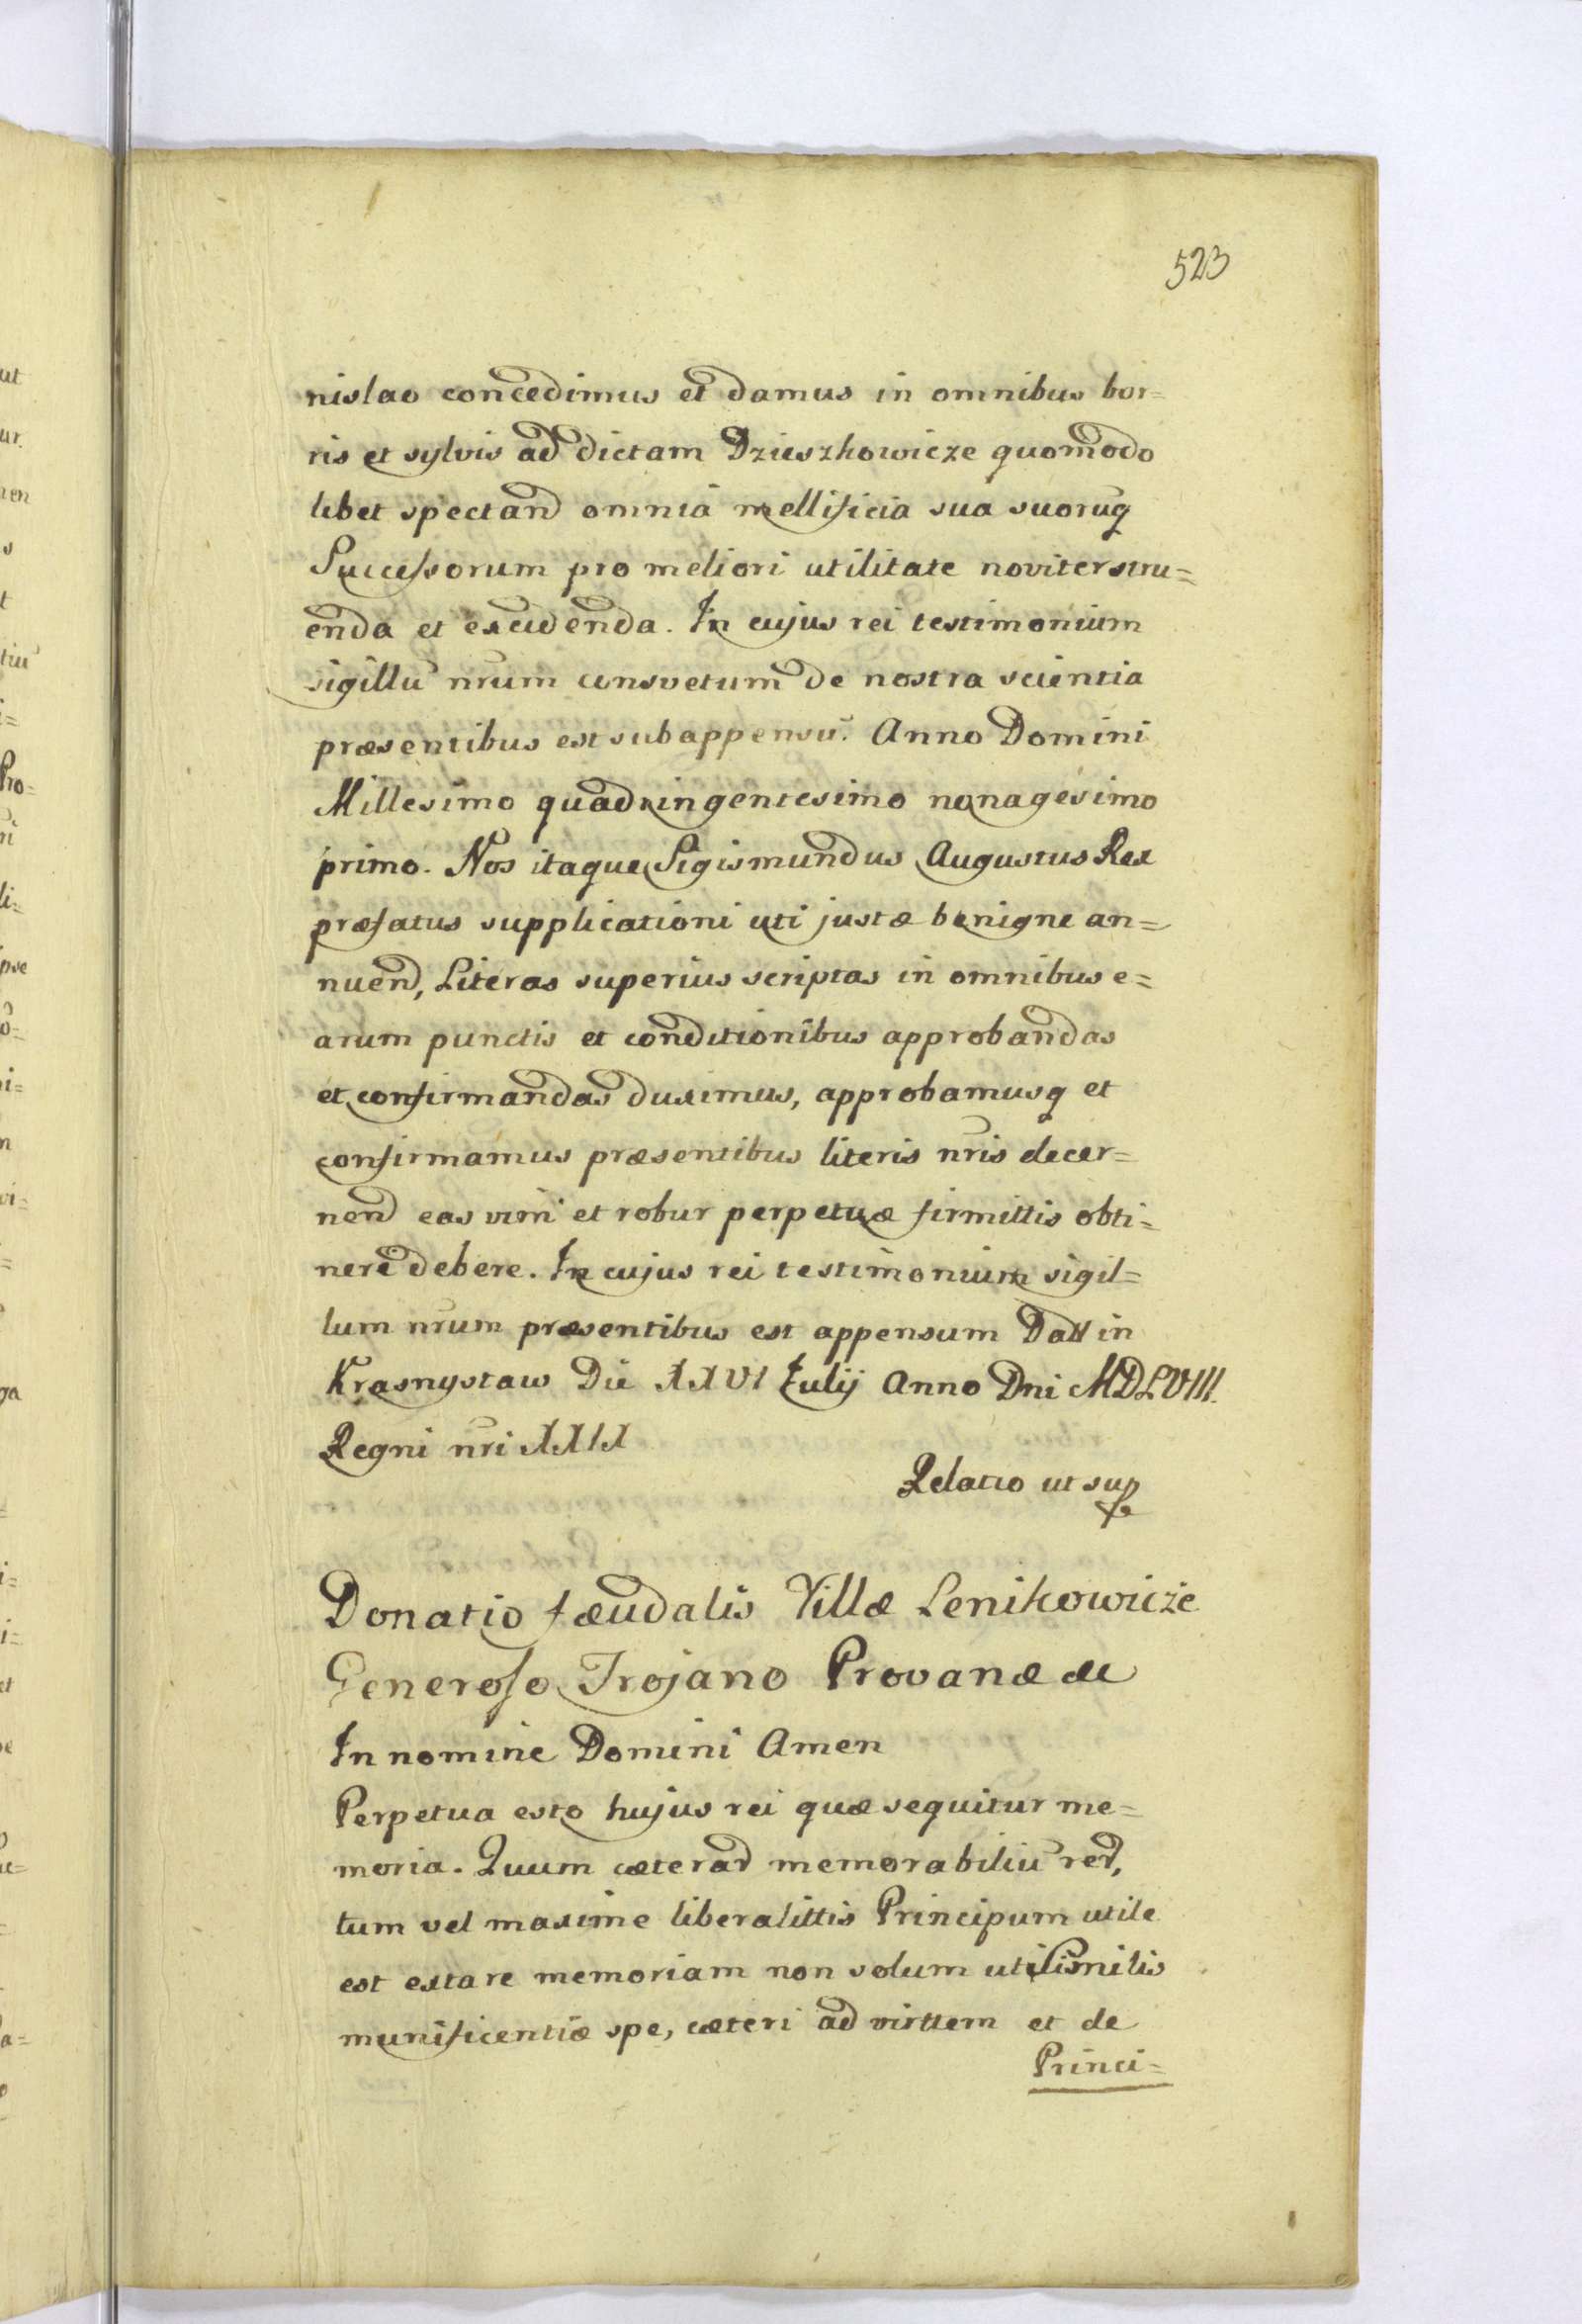 523
nislao concedimus et damus in omnibus bor=
ris et sylvis ad dictam Dzieszkowicze quomodo
libet spectand omnia mellificia sua suoruq
Successorum pro meliori utilitate noviter stru=
enda et excidenda. In cujus rei testimonium
sigillũ nrum consvetum de nostra scientia
præsentibus est subappensũ. Anno Domini
Millesimo quadringentesimo nonagesimo
primo. Nos itaque Sigismundus Augustus Rex
præfatus supplicationi uti justæ benigne an=
nuend, Literas superius scriptas in omnibus e=
arum punctis et conditionibus approbandas
et confirmandas duximus, approbamusq et
confirmamus præsentibus literis nris decer=
nend eas vim et robur perpetuæ firmittis obti=
nere debere. In cujus rei testimonium sigil=
lum nrum præsentibus est appensum Datt in
Krasnystaw Die XXVI Julij Anno Dni MDLVIII.
Regni nri XXIX
Relatio ut sup
Donatio fæudalis Villæ Lenikowicze
Generoso Trojano Provanæ de
In nomine Domini Amen
Perpetua esto hujus rei quæ sequitur me=
moria. Quum cæterar memorabiliũ rer,
tum vel maxime liberalittis Principum utile
est extare memoriam non solum uti Similis
munificentiæ spe, cæteri ad virttem et de
Princi=